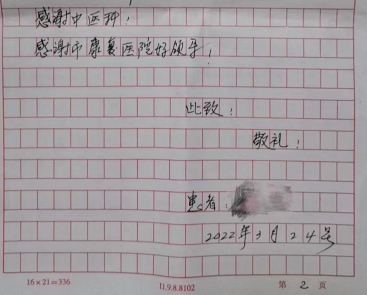 感谢中医科！
感谢市康复医院好领导！
此致！
敬礼！
患者：
2022年3月24号
16×21=336
11.9.8.8102
第 2 页